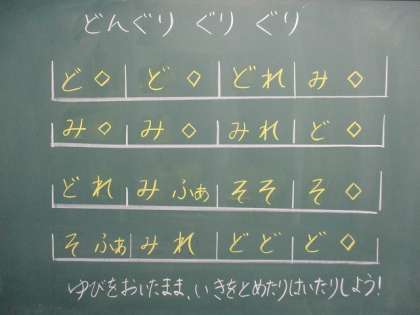 どんぐり ぐり ぐり
ど ◇ | ど ◇ | どれ | み ◇
み ◇ | み ◇ | みれ | ど ◇
どれ | みふぁ | そそ | そ ◇
そふぁ | みれ | どど | ど ◇
ゆびをおいたまま、いきをとめたりはいたりしよう!